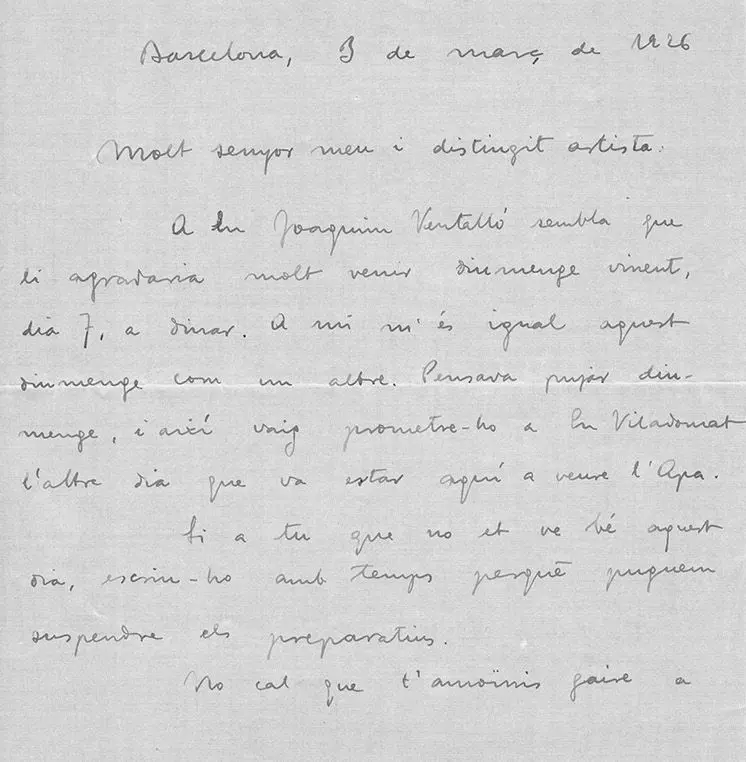 Barcelona, 3 de març de 1926
Molt senyor meu i distingit artista:
A En Joaquim Ventalló sembla que
li agradaria molt venir diumenge vinent,
dia 7, a dinar. A mi m'és igual aquest
diumenge com un altre. Pensava pujar diu-
menge, i així vaig prometre-ho a En Viladomat
l'altre dia que va estar aquí a veure l'Apa.
Si a tu que no et ve bé aquest
dia, escriu-ho amb temps perquè puguem
suspendre els preparatius.
No cal que t'amoïnis gaire a